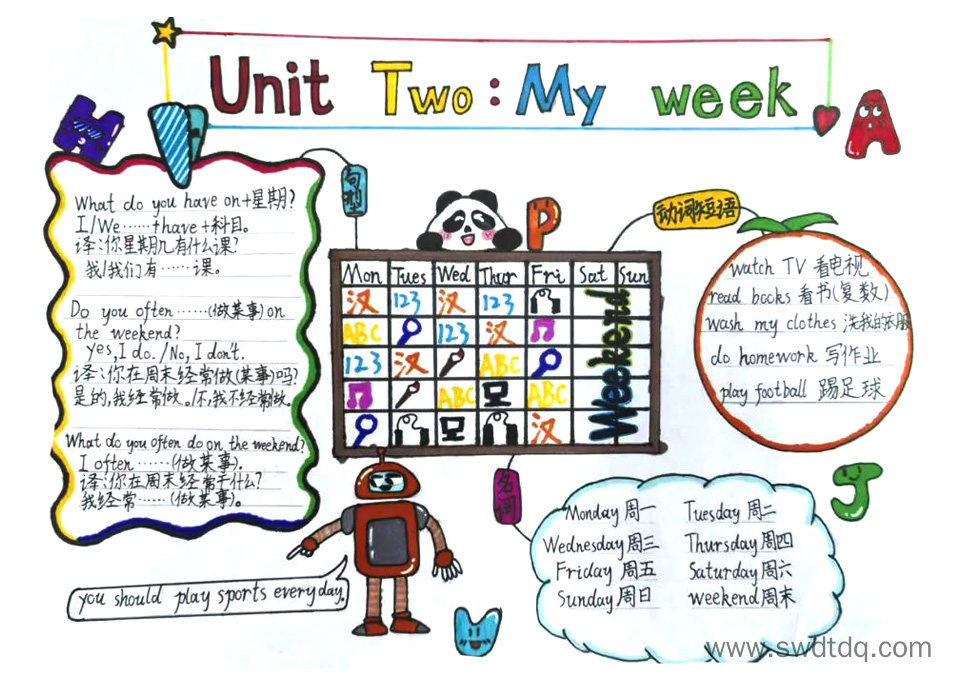 Unit Two: My week
What do you have on+星期?
I/We……+have+科目。
译:你星期几有什么课?
我/我们有……课。
Do you often ……(做某事)on
the weekend?
yes,I do. /No, I don't.
译:你在周末经常做(某事)吗?
是的,我经常做。/不,我不经常做。
What do you often do on the weekend?
I often ……(做某事).
译:你在周末经常干什么?
我经常……(做某事)。
句型
P
Mon Tues Wed Thur Fri Sat Sun
汉 123 汉 123
ABC 123 汉
123 汉 ABC
ABC ABC
汉
Weekend
动词短语
watch TV 看电视
read books 看书(复数)
wash my clothes 洗我的衣服
do homework 写作业
play football 踢足球
名词
Monday 周一 Tuesday 周二
Wednesday 周三 Thursday 周四
Friday 周五 Saturday 周六
Sunday 周日 weekend 周末
you should play sports everyday.
A
J
www.swdtdq.com